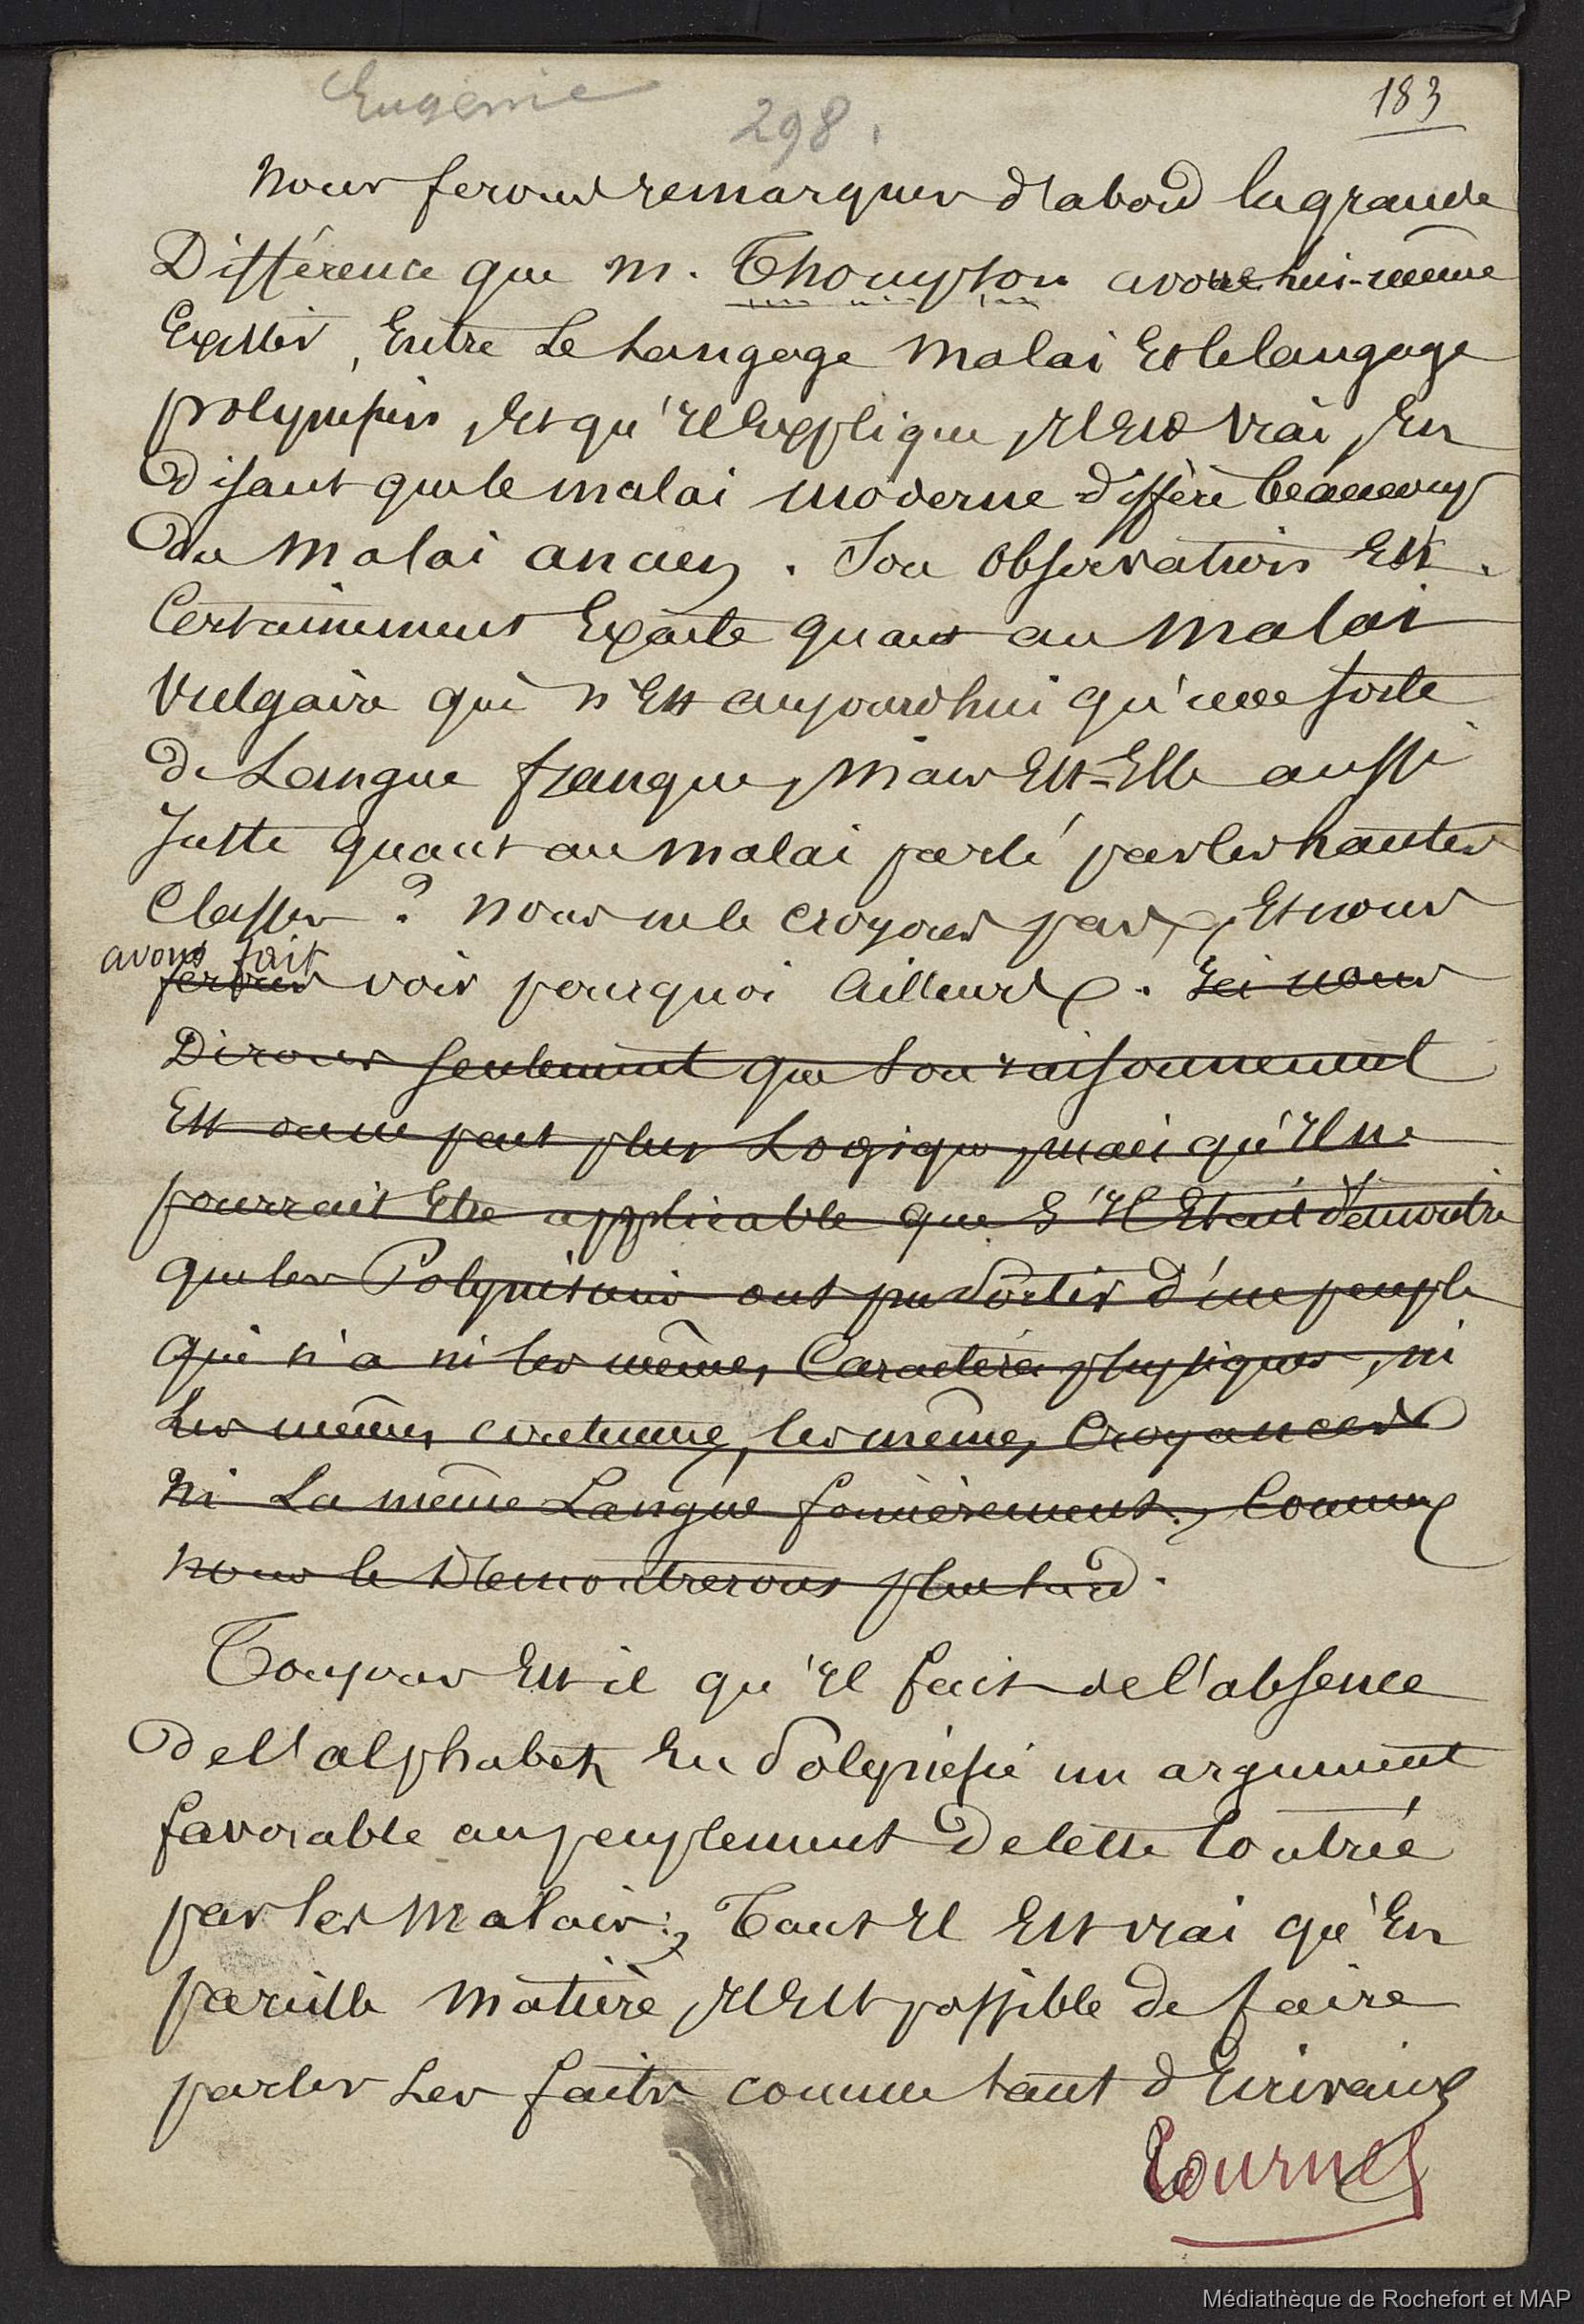 Eugénie
298.
183
Nous ferons remarquer d'abord la grande
Différence que M. Thompson avoue lui-même
Exister, Entre Le Langage Malai Et le langage
polynésien, Et qu'Il Explique, Il Est vrai, En
Disant que le malai moderne diffère beaucoup
Du Malai ancien. Son Observation Est
Certainement Exacte quant au Malai
Vulgaire qui n'Est aujourdhui qu'une sorte
de Langue franque, Mais Est-Elle aussi
Juste quant au Malai parlé par les hautes
Classes ? Nous ne le croyons pas, Et nous
avons fait
ferons voir pourquoi Ailleurs. Ici nous
Dirons seulement que Son raisonnement
Est on ne peut plus Logique, mais qu'Il ne
pourrait Etre applicable que S'Il Etait démontré
que les Polynésiens ont pu Sortir d'un peuple
qui n'a ni les mêmes Caractères physiques, ni
Les mêmes coutumes, les mêmes Croyances
Ni La même Langue foncièrement, Comme
nous le Démontrerons plus tard.
Toujours Est-il qu'Il fait de l'absence
De l'alphabet En Polynésie un argument
favorable au peuplement De cette Contrée
par les Malais ; Tant Il Est vrai qu'En
pareille Matière, Il Est possible de faire
parler Les faits comme tant d'Ecrivains
Tournez
Médiathèque de Rochefort et MAP